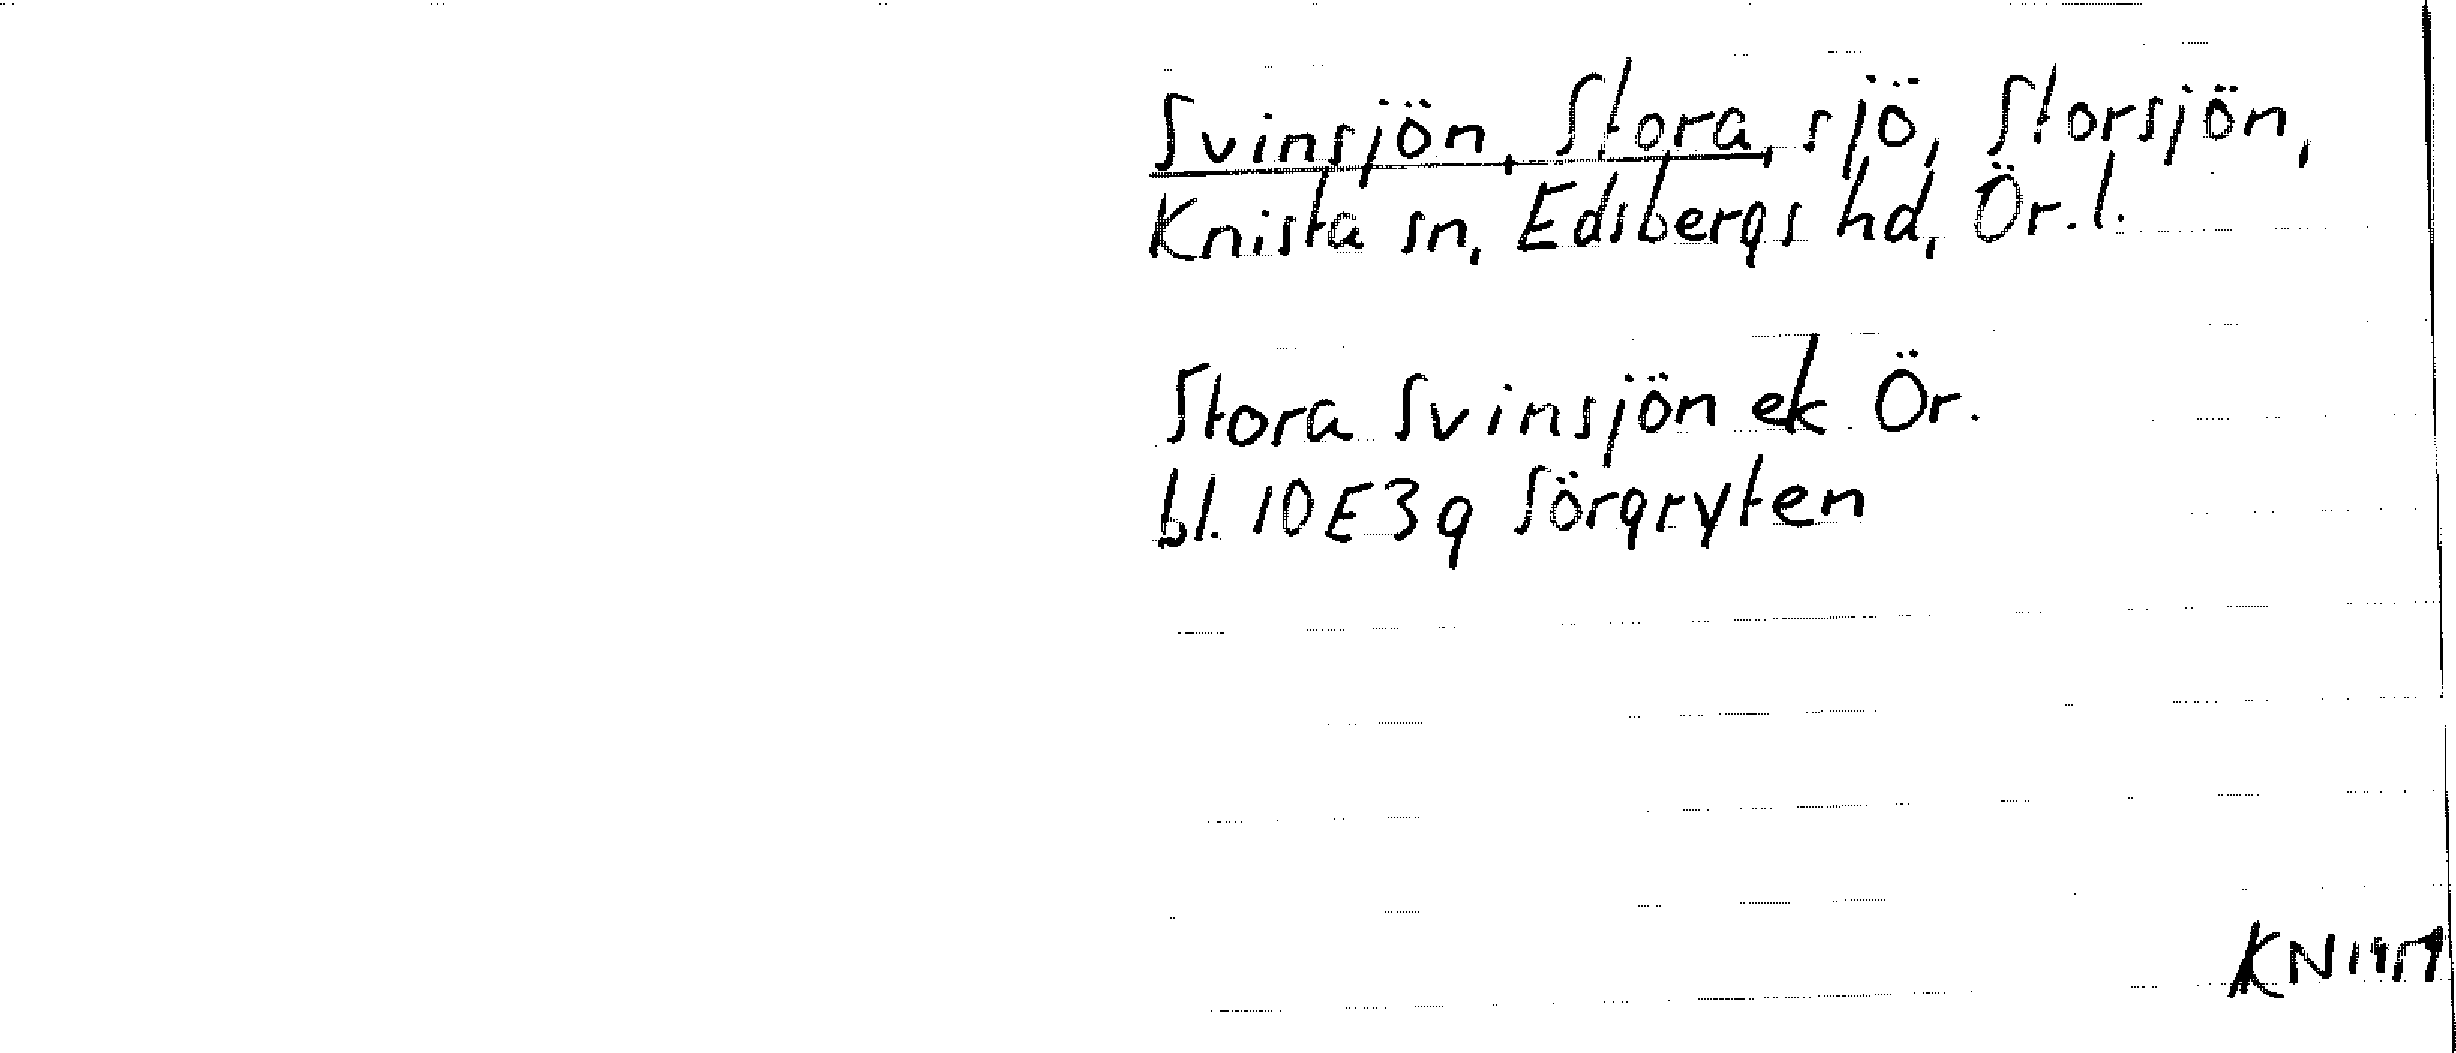 Svinsjön, Stora, sjö, Storsjön,
Knista sn, Edsbergs hd, Ör.l.
Stora Svinsjön ek Ör.
bl. 10E3g Sörgryten